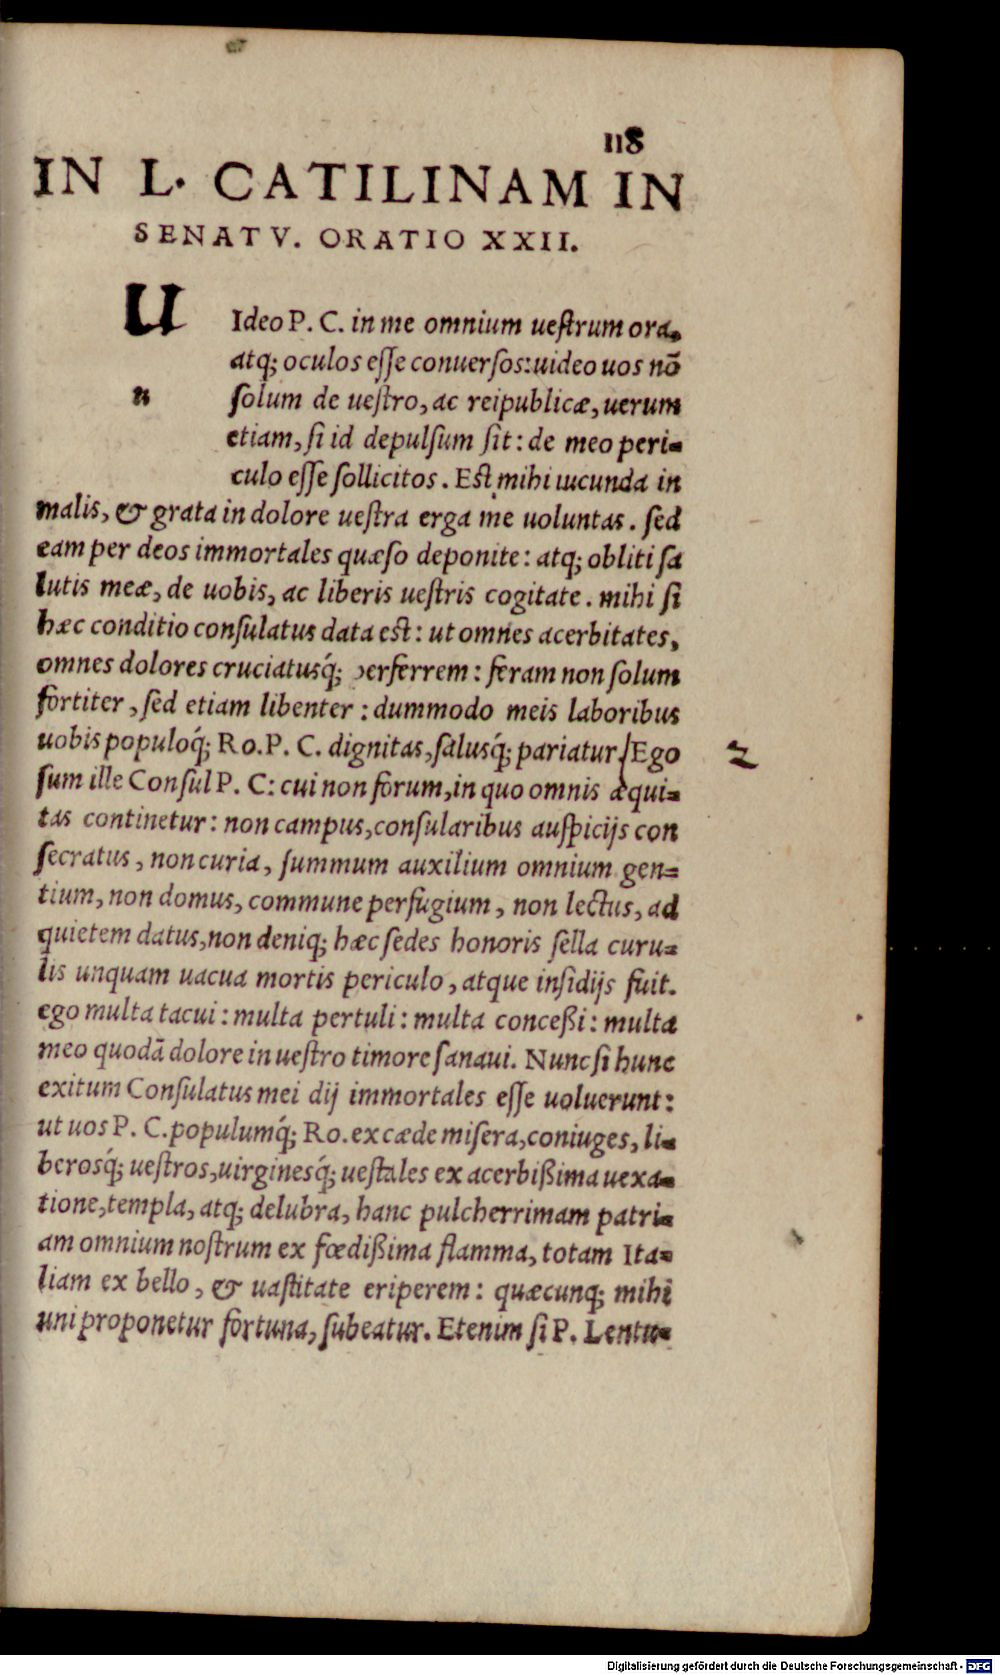 118
IN L. CATILINAM IN
SENATV. ORATIO XXII.
U
Ideo P. C. in me omnium ueſtrum ora,
atq; oculos eſſe conuerſos: uideo uos nõ
n
ſolum de ueſtro, ac reipublicæ, uerum
etiam, ſi id depulſum ſit: de meo peri=
culo eſſe ſollicitos. Eſt mihi iucunda in
malis, & grata in dolore ueſtra erga me uoluntas. ſed
eam per deos immortales quæſo deponite: atq; obliti ſa
lutis meæ, de uobis, ac liberis ueſtris cogitate. mihi ſi
hæc conditio conſulatus data eſt: ut omnes acerbitates,
omnes dolores cruciatusq́; perferrem: feram non ſolum
fortiter, ſed etiam libenter: dummodo meis laboribus
uobis populoq́; Ro. P. C. dignitas, ſalusq́; pariatur. Ego
2
ſum ille Conſul P. C: cui non forum, in quo omnis æqui=
tas continetur: non campus, conſularibus auſpicijs con
ſecratus, non curia, ſummum auxilium omnium gen=
tium, non domus, commune perfugium, non lectus, ad
quietem datus, non deniq; hæc ſedes honoris ſella curu=
lis unquam uacua mortis periculo, atque inſidijs fuit.
ego multa tacui: multa pertuli: multa conceßi: multa
meo quodã dolore in ueſtro timore ſanaui. Nunc ſi hunc
exitum Conſulatus mei dij immortales eſſe uoluerunt:
ut uos P. C. populumq́; Ro. ex cæde miſera, coniuges, li=
berosq́; ueſtros, uirginesq́; ueſtales ex acerbißima uexa=
tione, templa, atq; delubra, hanc pulcherrimam patri=
am omnium noſtrum ex fœdißima flamma, totam Ita=
liam ex bello, & uaſtitate eriperem: quæcunq; mihi
uni proponetur fortuna, ſubeatur. Etenim ſi P. Lentu=
Digitalisierung gefördert durch die Deutsche Forschungsgemeinschaft - DFG